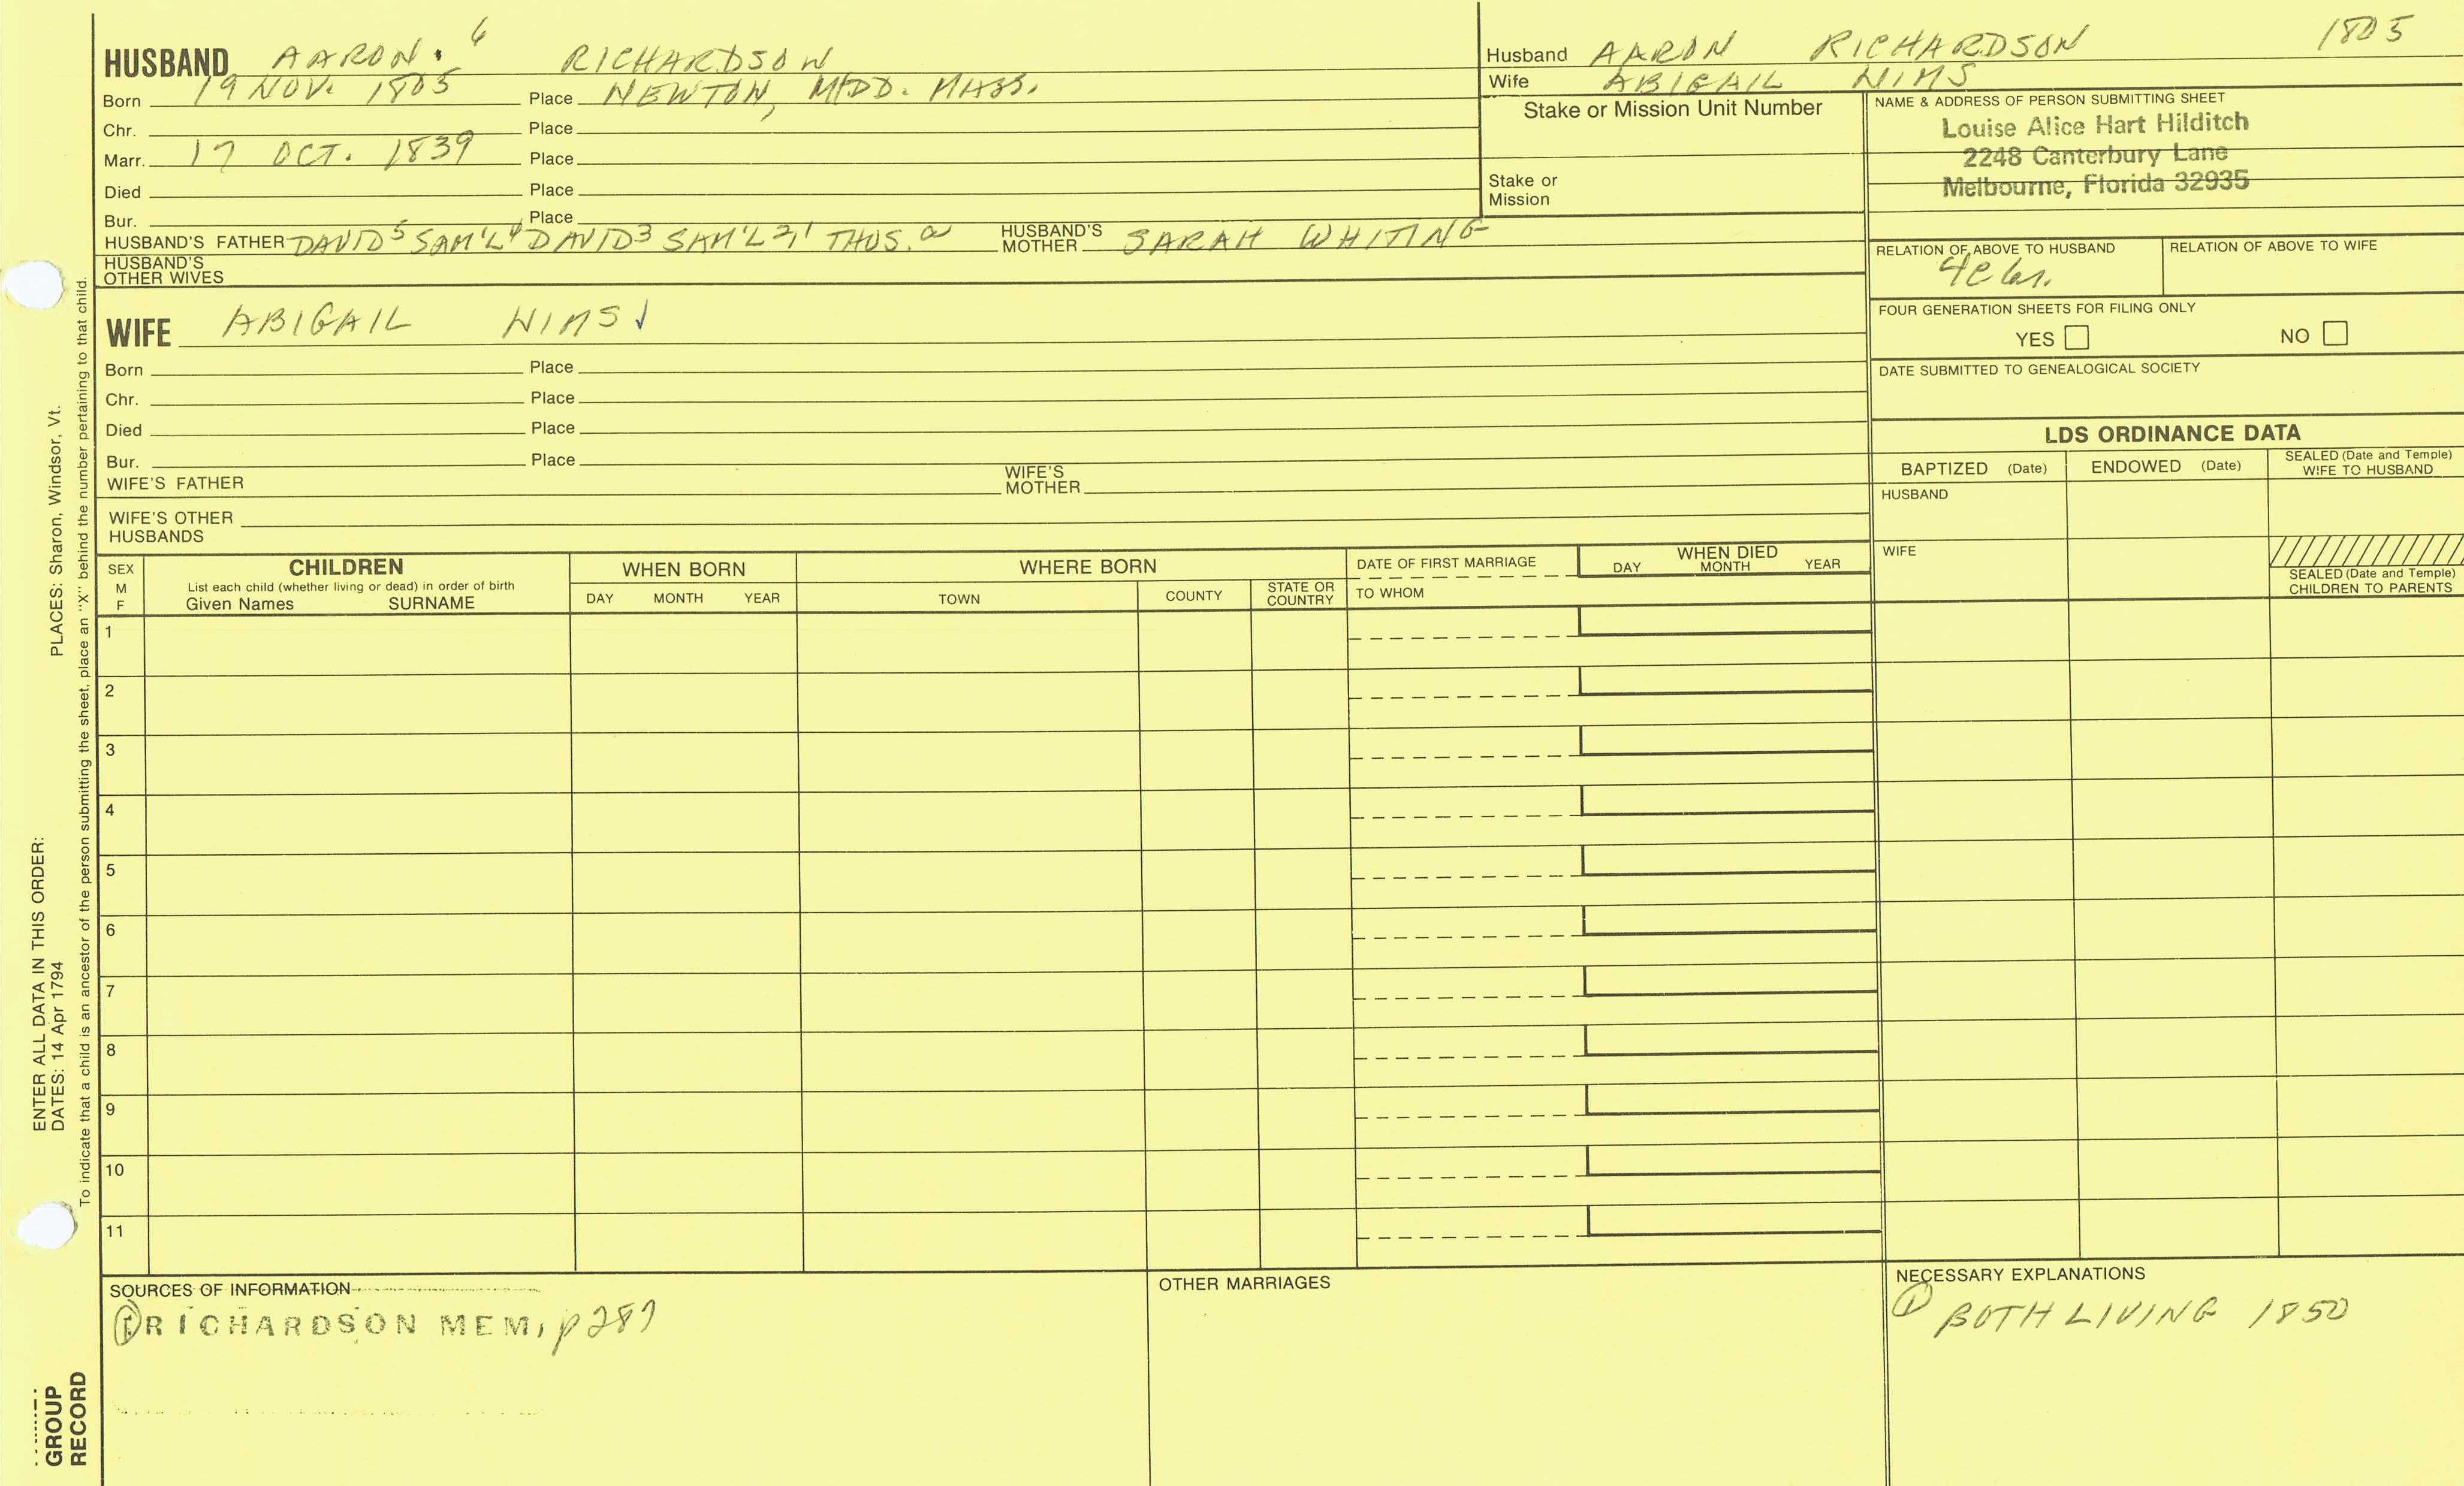 HUSBAND AARON. 6 RICHARDSON
Born 19 NOV. 1805 Place NEWTON, MIDD. MASS.
Chr. Place
Marr. 17 OCT. 1839 Place
Died Place
Bur. Place
HUSBAND'S FATHER DAVID5 SAM'L4 DAVID3 SAM'L2,1 THOS. HUSBAND'S MOTHER SARAH WHITING
HUSBAND'S OTHER WIVES
Husband AARON RICHARDSON 1805
Wife ABIGAIL NIMS
Stake or Mission Unit Number
Stake or
Mission
NAME & ADDRESS OF PERSON SUBMITTING SHEET
Louise Alice Hart Hilditch
2248 Canterbury Lane
Melbourne, Florida 32935
RELATION OF ABOVE TO HUSBAND
RELATION OF ABOVE TO WIFE
FOUR GENERATION SHEETS FOR FILING ONLY
YES NO
DATE SUBMITTED TO GENEALOGICAL SOCIETY
WIFE ABIGAIL NIMS
Born Place
Chr. Place
Died Place
Bur. Place
WIFE'S FATHER WIFE'S MOTHER
WIFE'S OTHER
HUSBANDS
LDS ORDINANCE DATA
BAPTIZED (Date) ENDOWED (Date) SEALED (Date and Temple) WIFE TO HUSBAND
HUSBAND
WIFE
SEALED (Date and Temple)
CHILDREN TO PARENTS
SEX
M
F
CHILDREN
List each child (whether living or dead) in order of birth
Given Names SURNAME
WHEN BORN
DAY MONTH YEAR
WHERE BORN
TOWN COUNTY STATE OR COUNTRY
DATE OF FIRST MARRIAGE
TO WHOM
WHEN DIED
DAY MONTH YEAR
1
2
3
4
5
6
7
8
9
10
11
SOURCES OF INFORMATION
① RICHARDSON MEM, p287
OTHER MARRIAGES
NECESSARY EXPLANATIONS
① BOTH LIVING 1850
ENTER ALL DATA IN THIS ORDER:
DATES: 14 Apr 1794 PLACES: Sharon, Windsor, Vt.
To indicate that a child is an ancestor of the person submitting the sheet, place an "X" behind the number pertaining to that child.
GROUP
RECORD